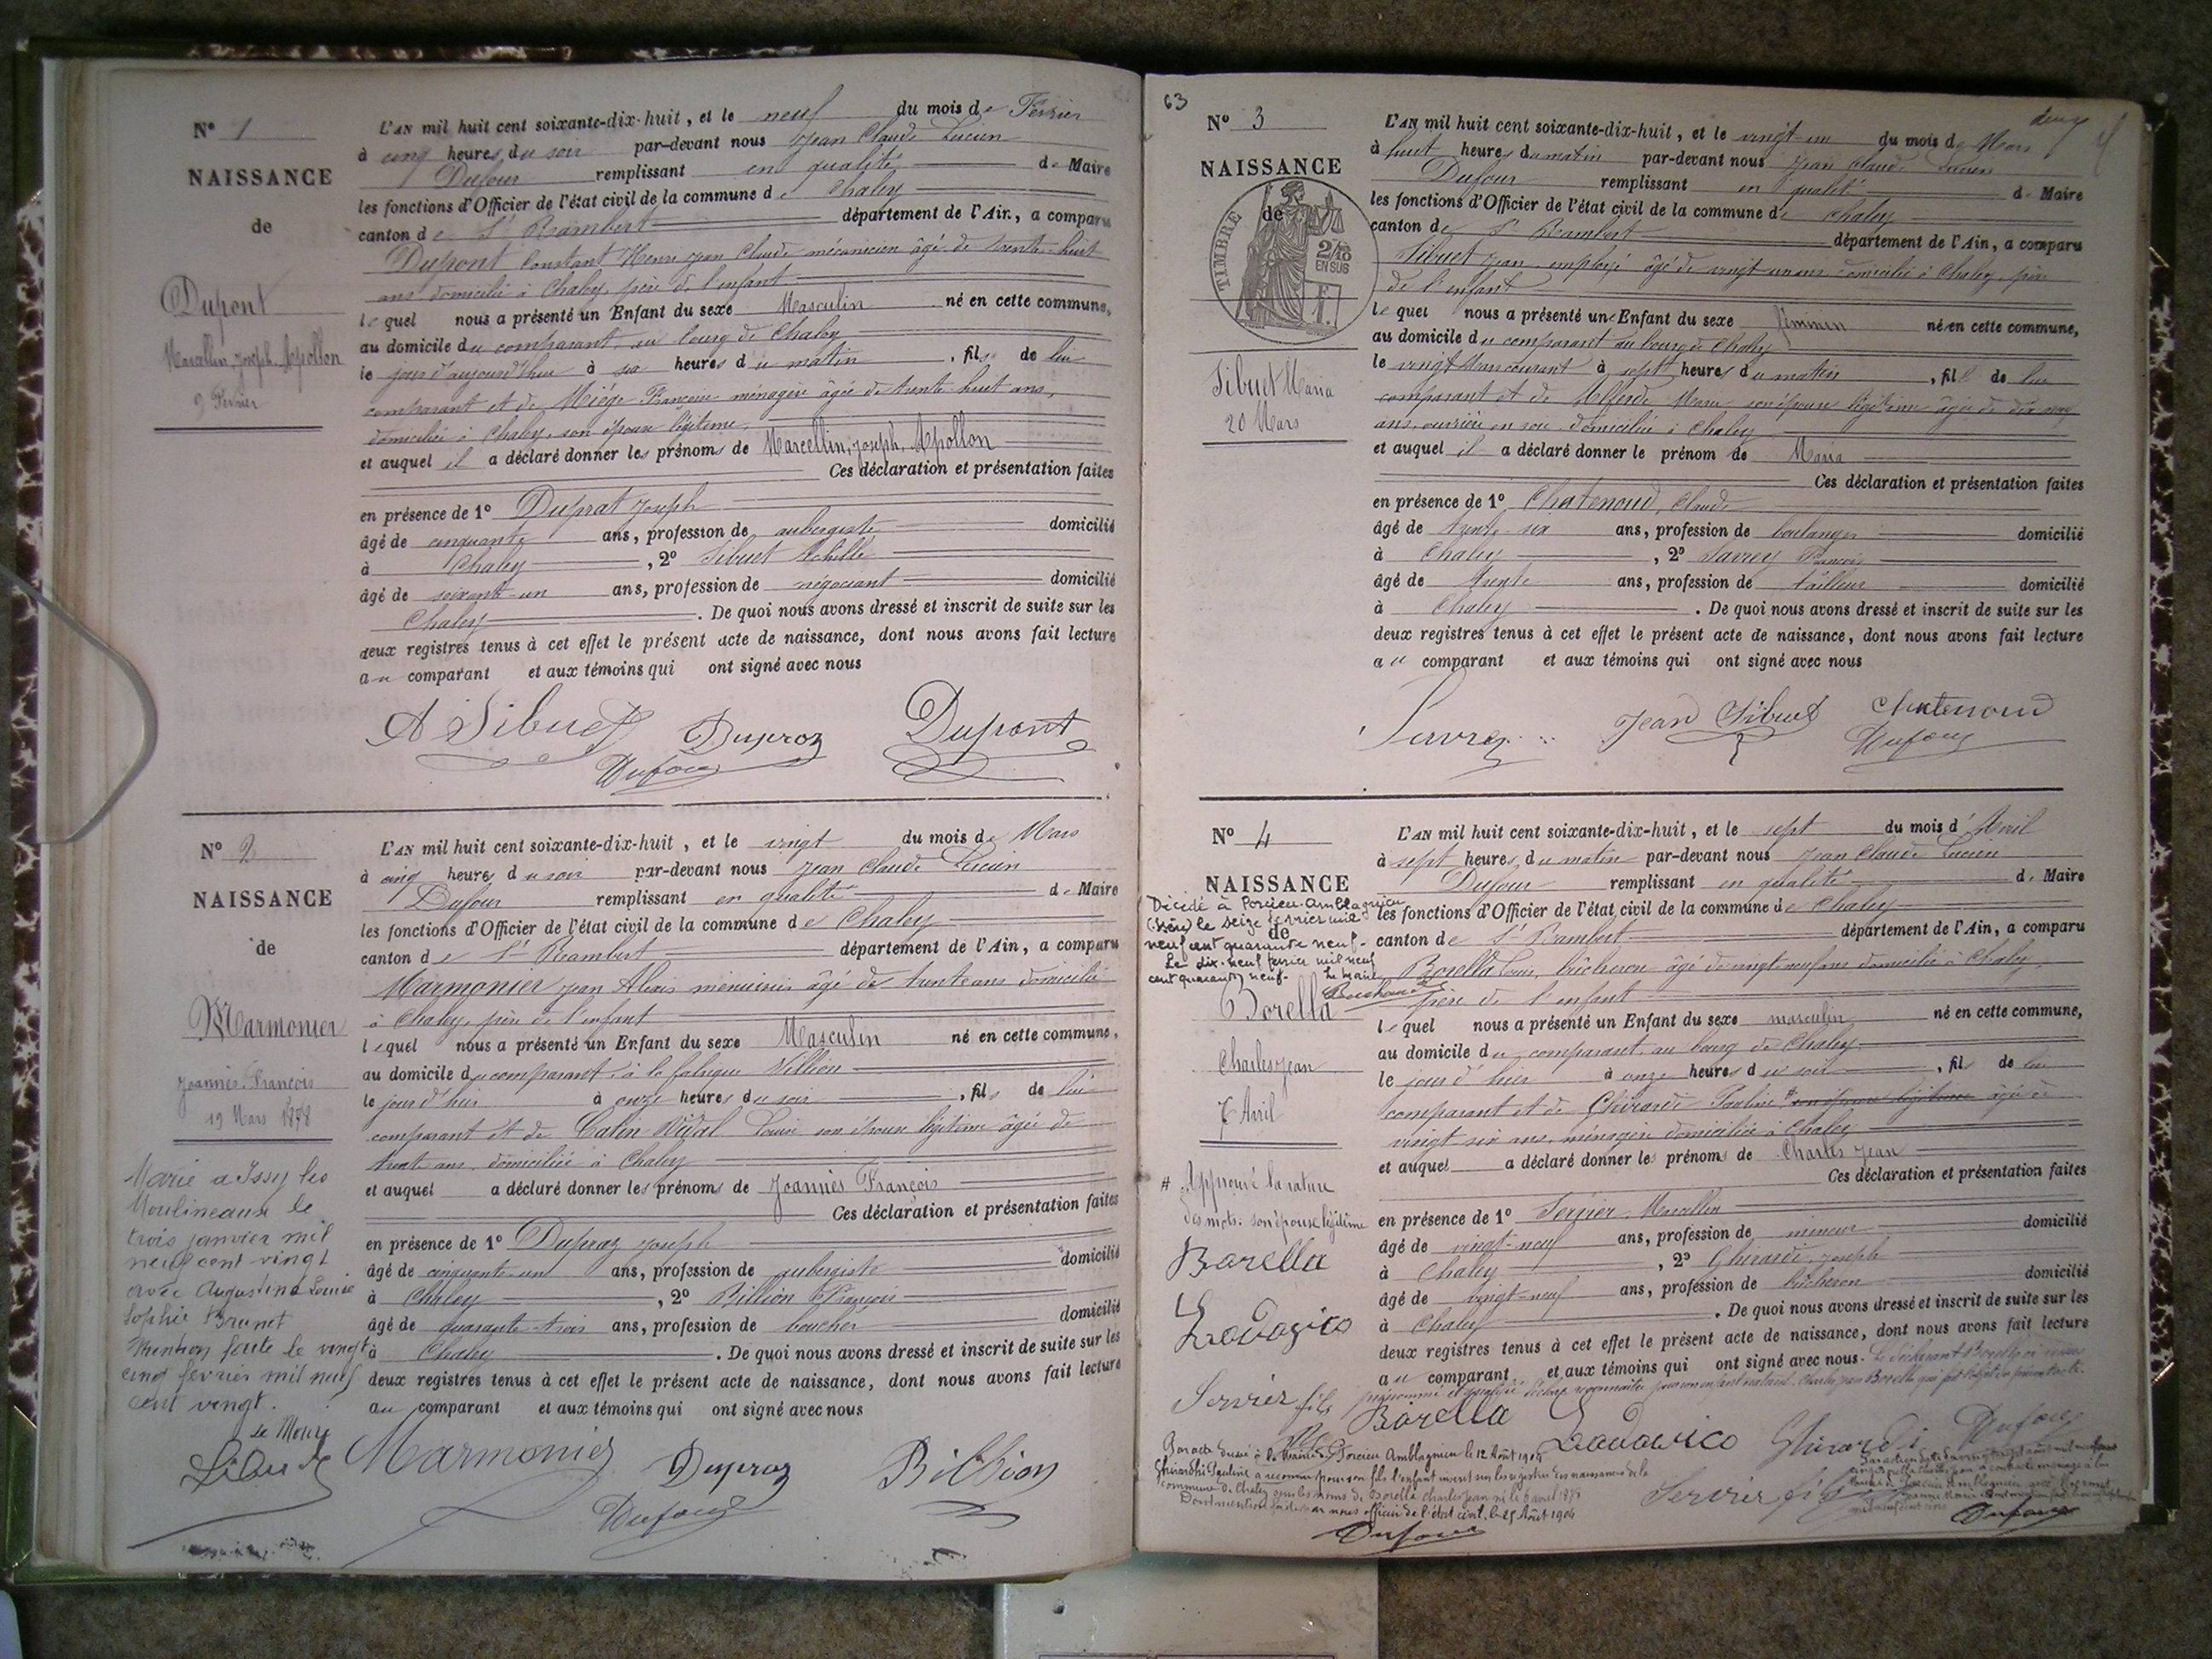 N° 1
NAISSANCE
de
Dupont
Marcellin, Joseph, Apollon
9 Février
L'AN mil huit cent soixante-dix-huit, et le neuf du mois de Février
à cinq heures du soir par-devant nous Jean Claude Lucien
Dufour remplissant en qualité de Maire
les fonctions d'Officier de l'état civil de la commune de Chaley
canton de St Rambert département de l'Ain, a comparu
Dupont Constant Henri Jean Claude mécanicien âgé de trente-huit
ans domicilié à Chaley, père de l'enfant
lequel nous a présenté un Enfant du sexe Masculin né en cette commune,
au domicile du comparant, au bourg de Chaley
le jour d'aujourd'hui à six heures du matin, fils de lui
comparant et de Miège Françoise ménagère âgée de trente huit ans,
domiciliée à Chaley, son épouse légitime,
et auquel il a déclaré donner les prénoms de Marcellin, Joseph, Apollon
Ces déclaration et présentation faites
en présence de 1° Duprat Joseph
âgé de cinquante ans, profession de aubergiste domicilié
à Chaley, 2° Sibuet Achille
âgé de soixante-un ans, profession de négociant domicilié
Chaley. De quoi nous avons dressé et inscrit de suite sur les
deux registres tenus à cet effet le présent acte de naissance, dont nous avons fait lecture
au comparant et aux témoins qui ont signé avec nous
A Sibuet Dupraz Dupont
Dufour
N° 2
NAISSANCE
de
Marmonier
Joannès François
19 Mars 1878
Marié a Issy les
Moulineaux le
trois janvier mil
neuf cent vingt
avec Augustine Louise
Sophie Brunet
Mention faite le vingt
cinq fevrier mil neuf
cent vingt.
Le Maire
L'AN mil huit cent soixante-dix-huit, et le vingt du mois de Mars
à cinq heures du soir par-devant nous Jean Claude Lucien
Dufour remplissant en qualité de Maire
les fonctions d'Officier de l'état civil de la commune de Chaley
canton de St Rambert département de l'Ain, a comparu
Marmonier Jean Alexis menuisier âgé de trente ans domicilié
à Chaley, père de l'enfant
lequel nous a présenté un Enfant du sexe Masculin né en cette commune,
au domicile du comparant, à la fabrique Villion
le jour d'hier à onze heures du soir, fils de lui
comparant et de Calin Vidal Louise son épouse légitime âgée de
trente ans, domiciliée à Chaley
et auquel a déclaré donner les prénoms de Joannès François
Ces déclaration et présentation faites
en présence de 1° Dupraz Joseph
âgé de cinquante-un ans, profession de aubergiste domicilié
à Chaley, 2° Billion François
âgé de quarante-trois ans, profession de boucher domicilié
à Chaley. De quoi nous avons dressé et inscrit de suite sur les
deux registres tenus à cet effet le présent acte de naissance, dont nous avons fait lecture
au comparant et aux témoins qui ont signé avec nous
Marmonier Dupraz Billion
Dufour
63
deux
N° 3
NAISSANCE
de
TIMBRE
2/10
EN SUS
Sibuet Maria
20 Mars
L'AN mil huit cent soixante-dix-huit, et le vingt-un du mois de Mars
à huit heures du matin par-devant nous Jean Claude Lucien
Dufour remplissant en qualité de Maire
les fonctions d'Officier de l'état civil de la commune de Chaley
canton de St Rambert département de l'Ain, a comparu
Sibuet Jean employé âgé de vingt un ans domicilié à Chaley, père
de l'enfant
lequel nous a présenté une Enfant du sexe féminin né en cette commune,
au domicile du comparant au bourg de Chaley
le vingt Mars courant à sept heures du matin, fille de lui
comparant et de Marie son épouse légitime âgée de
ans, ouvrière en soie domiciliée à Chaley
et auquel il a déclaré donner le prénom de Maria
Ces déclaration et présentation faites
en présence de 1° Chatenoud, Claude
âgé de trente-six ans, profession de boulanger domicilié
à Chaley, 2° Savrey François
âgé de trente ans, profession de tailleur domicilié
à Chaley. De quoi nous avons dressé et inscrit de suite sur les
deux registres tenus à cet effet le présent acte de naissance, dont nous avons fait lecture
au comparant et aux témoins qui ont signé avec nous
Jean Sibuet Chatenoud
Dufour
N° 4
NAISSANCE
de
Décédé à Porcieu-Amblagnieu
(Isère) le seize février mil
neuf cent quarante neuf.
Le dix-neuf février mil neuf
cent quarante neuf. Le Maire
Borella
Charles Jean
7 Avril
# Approuvé la rature
des mots: son épouse légitime
Borella
Lodovico
Servier fils
L'AN mil huit cent soixante-dix-huit, et le sept du mois d'Avril
à sept heures du matin par-devant nous Jean Claude Lucien
Dufour remplissant en qualité de Maire
les fonctions d'Officier de l'état civil de la commune de Chaley
canton de St Rambert département de l'Ain, a comparu
Borella Louis, bûcheron âgé de vingt neuf ans domicilié à Chaley
père de l'enfant
lequel nous a présenté un Enfant du sexe masculin né en cette commune,
au domicile du comparant, au bourg de Chaley
le jour d'hier à onze heures du soir, fils de lui
comparant et de Ghirardi Pauline # son épouse légitime âgée de
vingt six ans, ménagère domiciliée à Chaley
et auquel a déclaré donner les prénoms de Charles Jean
Ces déclaration et présentation faites
en présence de 1° Servier Marcellin
âgé de vingt-neuf ans, profession de mineur domicilié
à Chaley, 2° Ghirardi Joseph
âgé de vingt-neuf ans, profession de bûcheron domicilié
à Chaley. De quoi nous avons dressé et inscrit de suite sur les
deux registres tenus à cet effet le présent acte de naissance, dont nous avons fait lecture
au comparant et aux témoins qui ont signé avec nous. Le déclarant Borella
Borella Lodovico Ghirardi Dufour
Par acte dressé à la Mairie de Porcieu Amblagnieu le 12 Août 1904
Ghirardhi Pauline a reconnu pour son fils l'enfant inscrit sur les registres des naissances de la
Commune de Chaley sous les noms de Borella Charles Jean né le 6 avril 1878
Dont mention faite par nous officier de l'état civil le 25 Août 1904
Dufour
Servier fils
Dufour